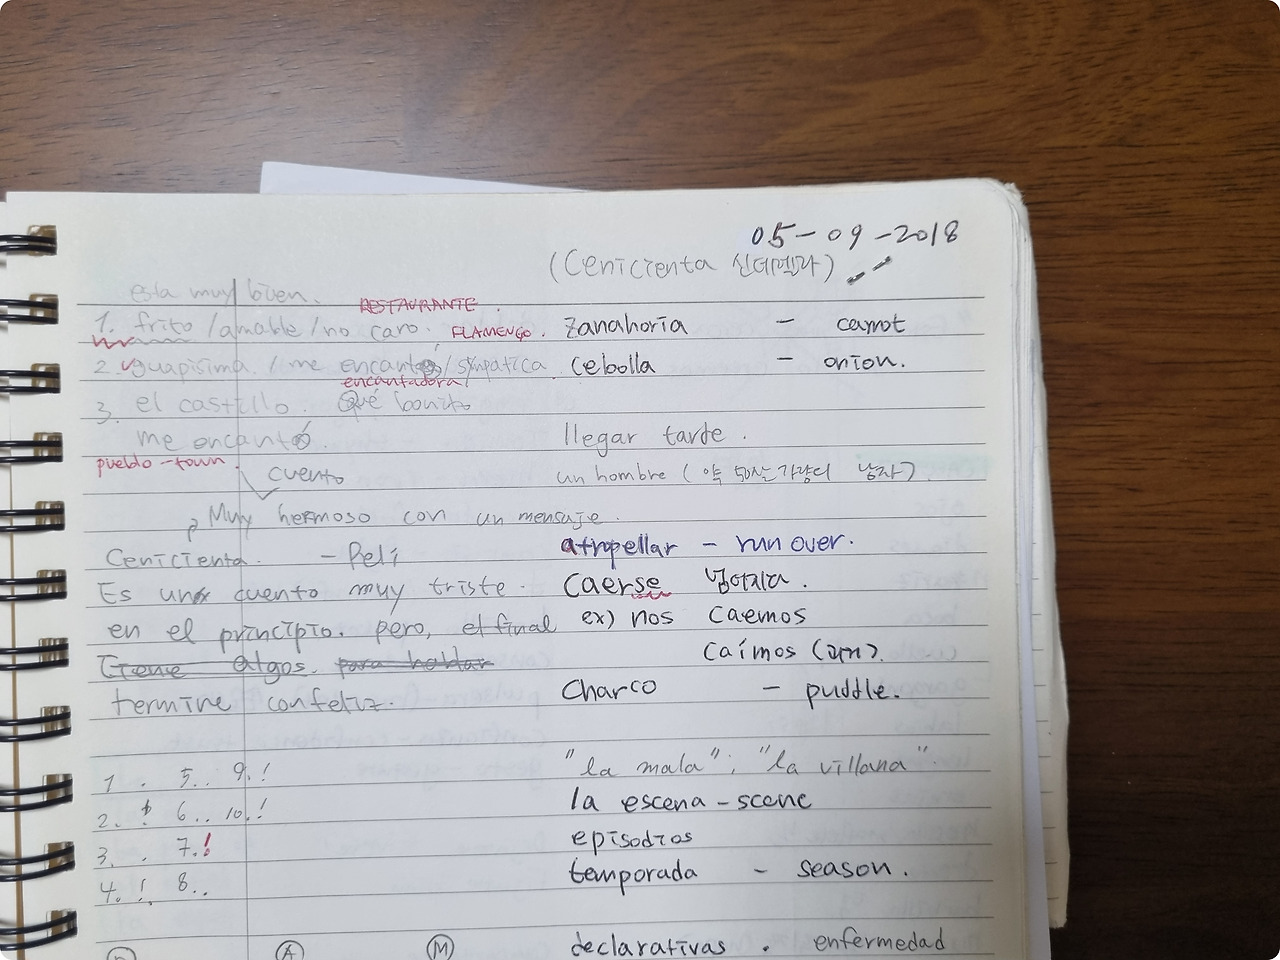 05-09-2018
(Cenicienta 신데렐라)
esta muy bien.
RESTAURANTE
1. frito / amable / no caro. FLAMENGO.
zanahoria - carrot
2. guapísima / me encanto / simpatica
cebolla - onion.
encantadora
3. el castillo. Qué bonito
me encantó.
llegar tarde.
pueblo - town
cuento
un hombre (약 50살 가량의 남자)
Muy hermoso con un mensaje.
Cenicienta. - Peli
atropellar - run over.
Es un cuento muy triste.
caerse 넘어지다.
en el principio. pero, el final
ex) nos caemos
Tiene algos. para hablar
caímos
termine con feliz.
Charco - puddle.
"la mala"; "la villana"
1. . 5.. 9.!
la escena - scene
2. ! 6.. 10.!
episodios
3. . 7.!
temporada - season.
4. !. 8..
A M
declarativas. enfermedad